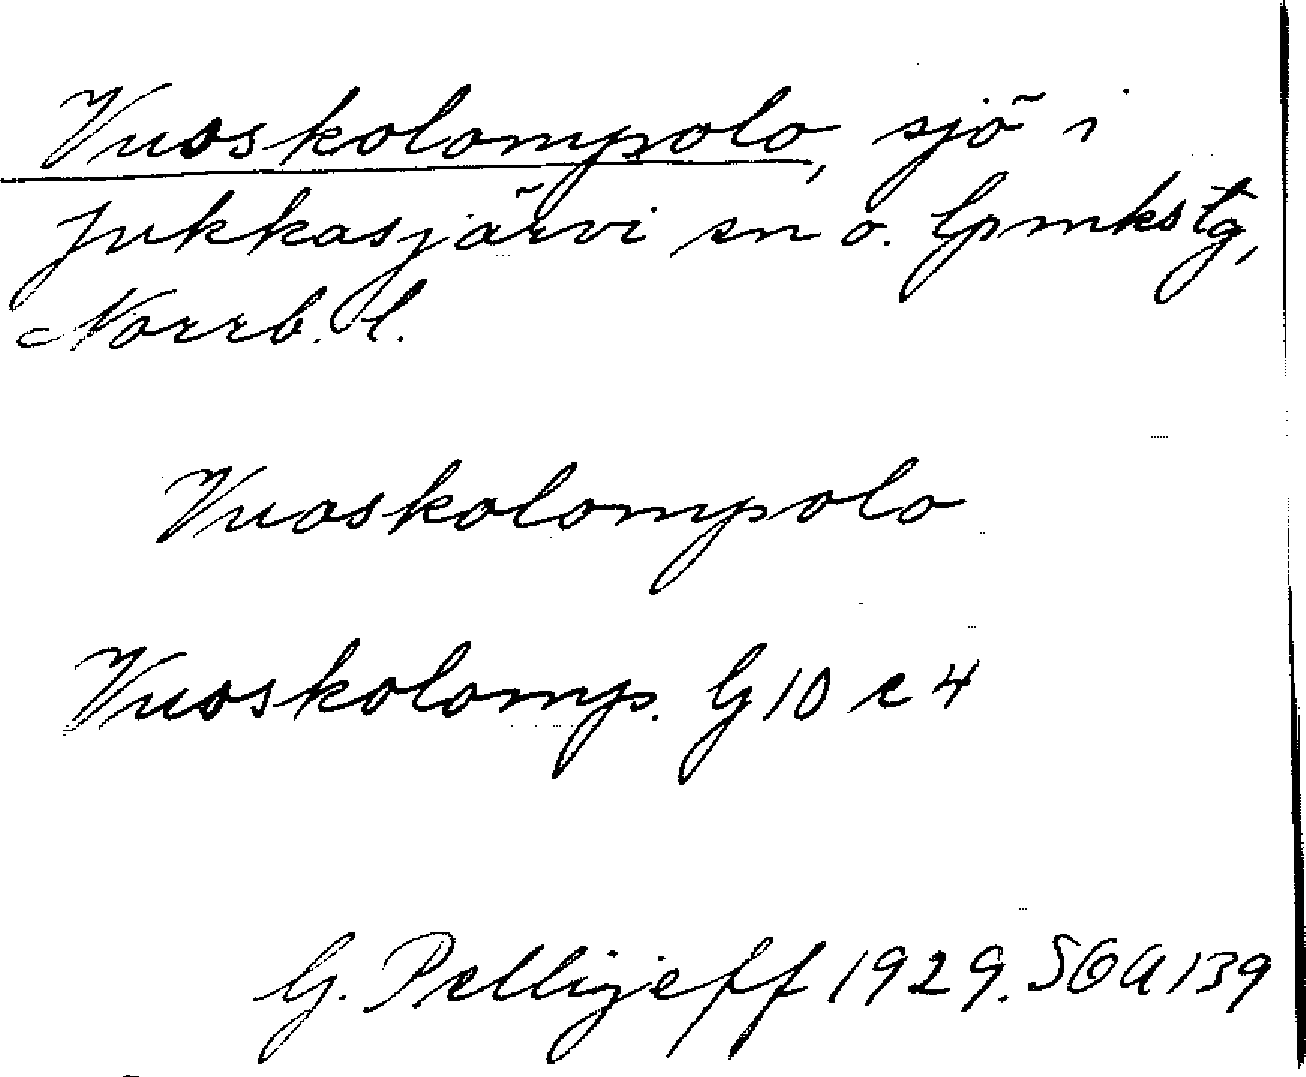 Vuoskolompolo, sjö i
Jukkasjärvi sn o. lpmkstg,
Norrb. l.
Vuoskolompolo
Vuoskolomp. G 10 c 4
G. Pellijeff 1929. SOA 139